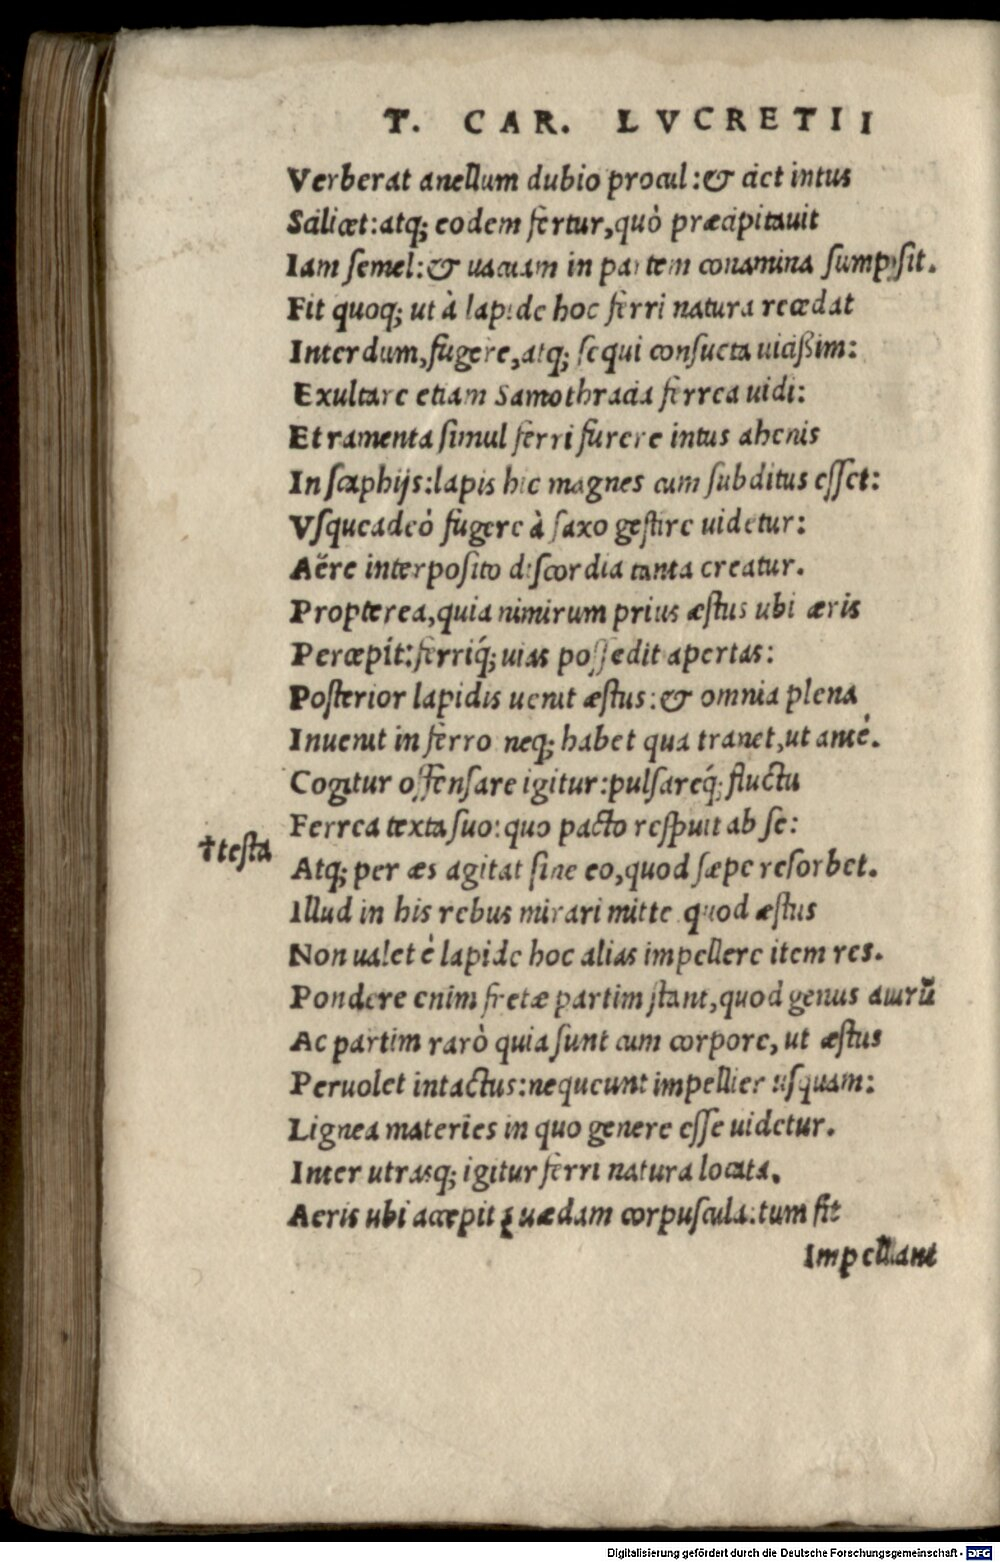 T. CAR. LVCRETII
Verberat anellum dubio procul:& ciet intus
Scilicet:atq; eodem fertur,quò præcipitauit
Iam semel:& uacuam in partem conamina sumpsit.
Fit quoq; ut à lapide hoc ferri natura recedat
Interdum,fugere,atq; sequi consueta uicißim:
Exultare etiam Samothracia ferrea uidi:
Et ramenta simul ferri furere intus ahenis
In scaphijs:lapis hic magnes cum subditus esset:
Vsqueadeò fugere à saxo gestire uidetur:
Aëre interposito discordia tanta creatur.
Propterea,quia nimirum prius æstus ubi æris
Percepit:ferriq́; uias possedit apertas:
Posterior lapidis uenit æstus:& omnia plena
Inuenit in ferro neq; habet qua tranet,ut antè.
Cogitur offensare igitur:pulsareq́; fluctu
Ferrea texta suo:quo pacto respuit ab se:
†testa
Atq; per æs agitat sine eo,quod sæpe resorbet.
Illud in his rebus mirari mitte quod æstus
Non ualet è lapide hoc alias impellere item res.
Pondere enim fretæ partim stant,quod genus aurū
Ac partim rarò quia sunt cum corpore, ut æstus
Peruolet intactus:nequeunt impellier usquam:
Lignea materies in quo genere esse uidetur.
Inter utrasq; igitur ferri natura locata.
Aeris ubi accepit quædam corpuscula:tum fit
Impellant
Digitalisierung gefördert durch die Deutsche Forschungsgemeinschaft - DFG